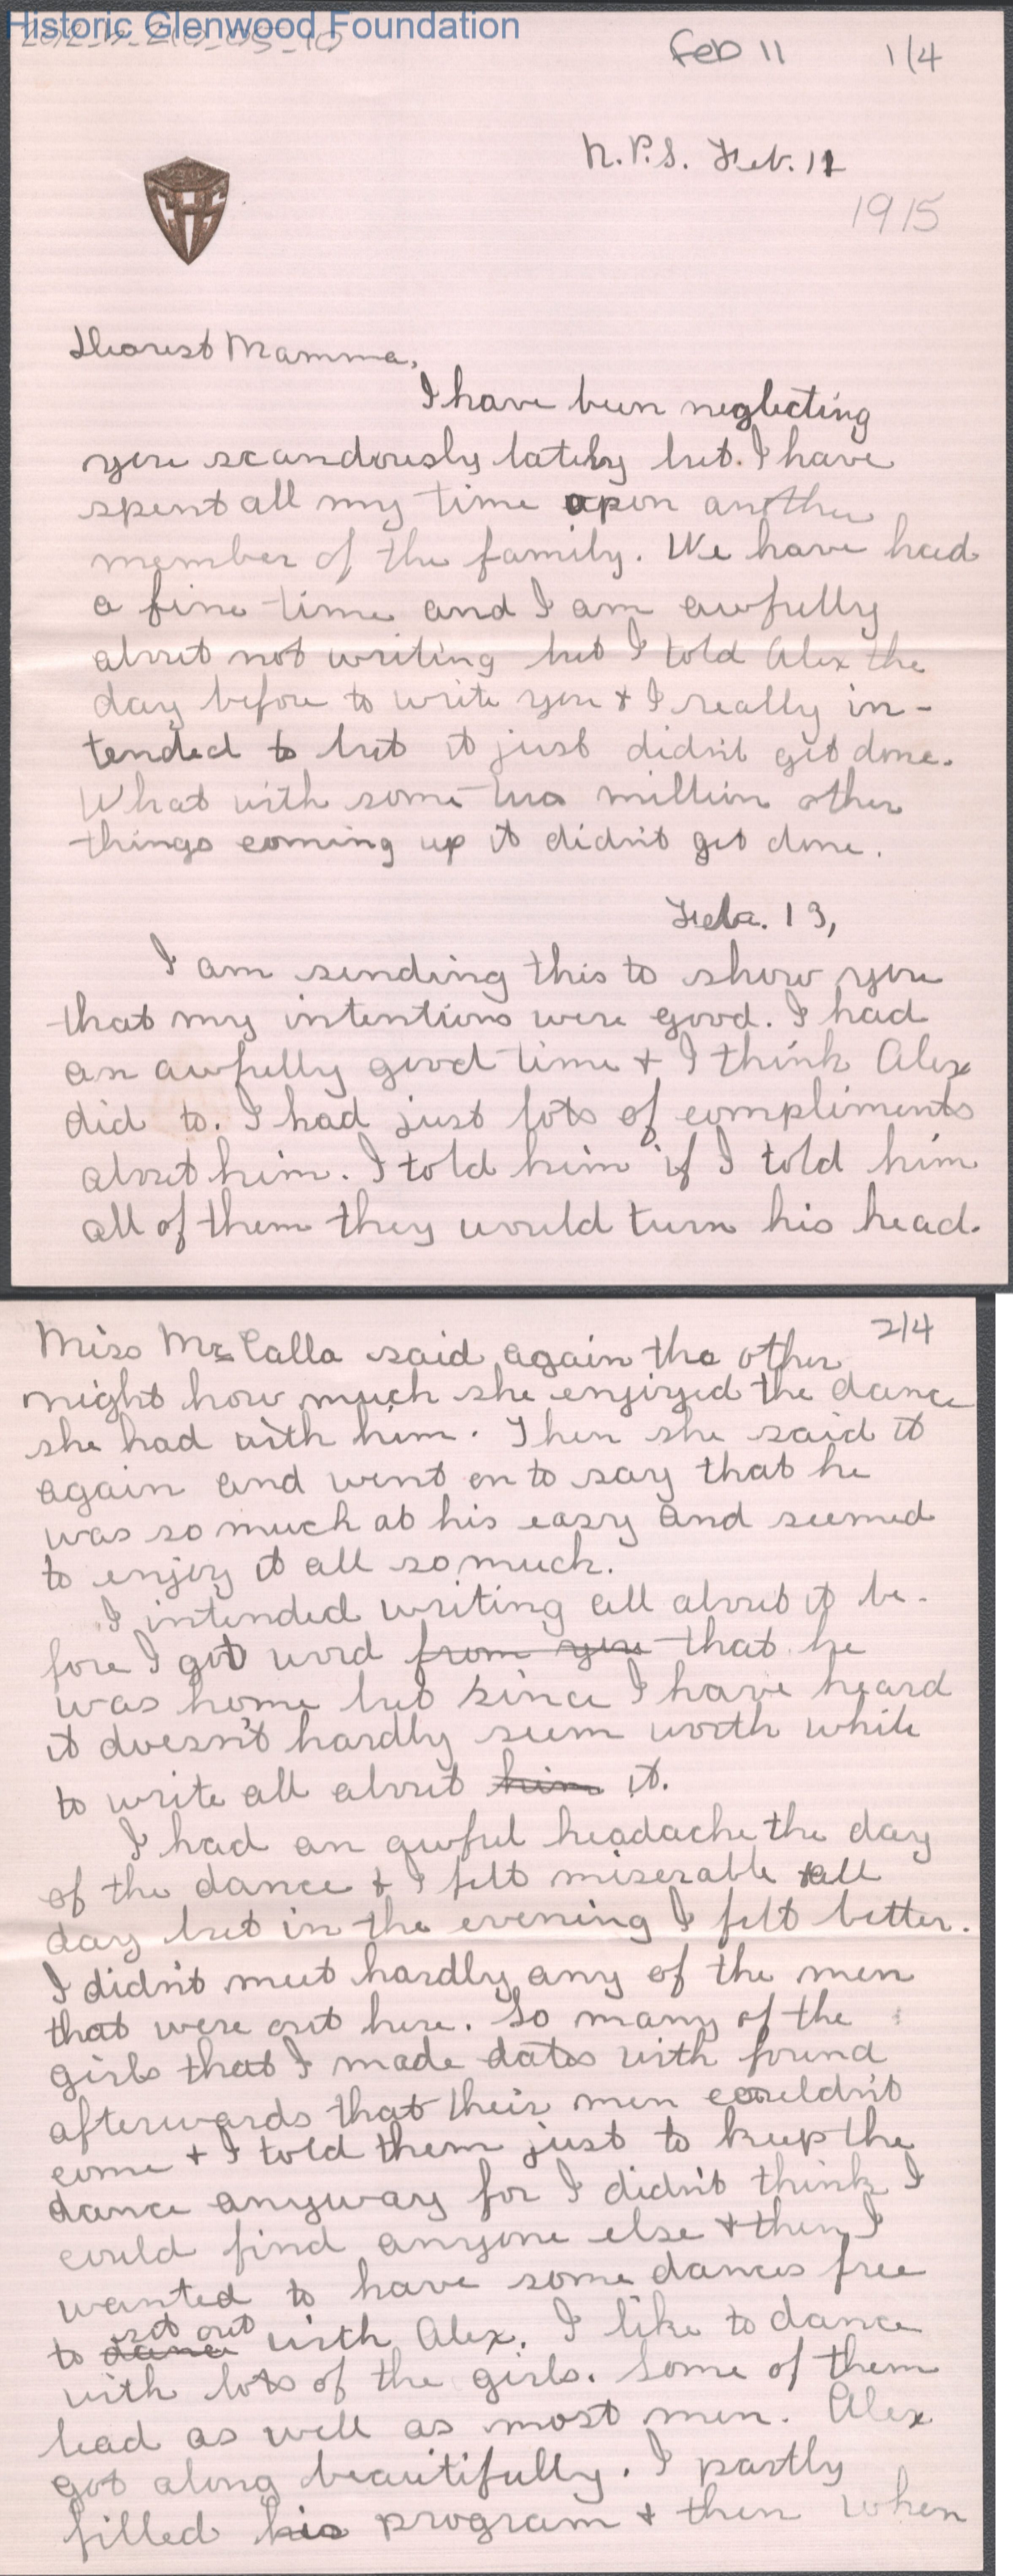 Historic Glenwood Foundation
2012_h_210_05_10
Feb 11 1/4
N.P.S. Feb. 11
1915
Dearest Mamma,
I have been neglecting
you scandously lately but I have
spent all my time upon another
member of the family. We have had
a fine time and I am awfully
about not writing but I told Alex the
day before to write you & I really in-
tended to but it just didn't get done.
What with some two million other
things coming up it didn't get done.
Feb. 13,
I am sending this to show you
that my intentions were good. I had
an awfully good time & I think Alex
did to. I had just lots of compliments
about him. I told him if I told him
all of them they would turn his head.
2/4
Miss McCalla said again the other
night how much she enjoyed the dance
she had with him. Then she said it
again and went on to say that he
was so much at his easy and seemed
to enjoy it all so much.
I intended writing all about it be-
fore I got word from you that he
was home but since I have heard
it doesn't hardly seem worth while
to write all about him it.
I had an awful headache the day
of the dance & I felt miserable all
day but in the evening I felt better.
I didn't meet hardly any of the men
that were out here. So many of the
girls that I made dates with found
afterwards that their men couldn't
come & I told them just to keep the
dance anyway for I didn't think I
could find anyone else & then I
wanted to have some dances free
to dance sit out with Alex. I like to dance
with lots of the girls. Some of them
lead as well as most men. Alex
got along beautifully. I partly
filled his program & then when